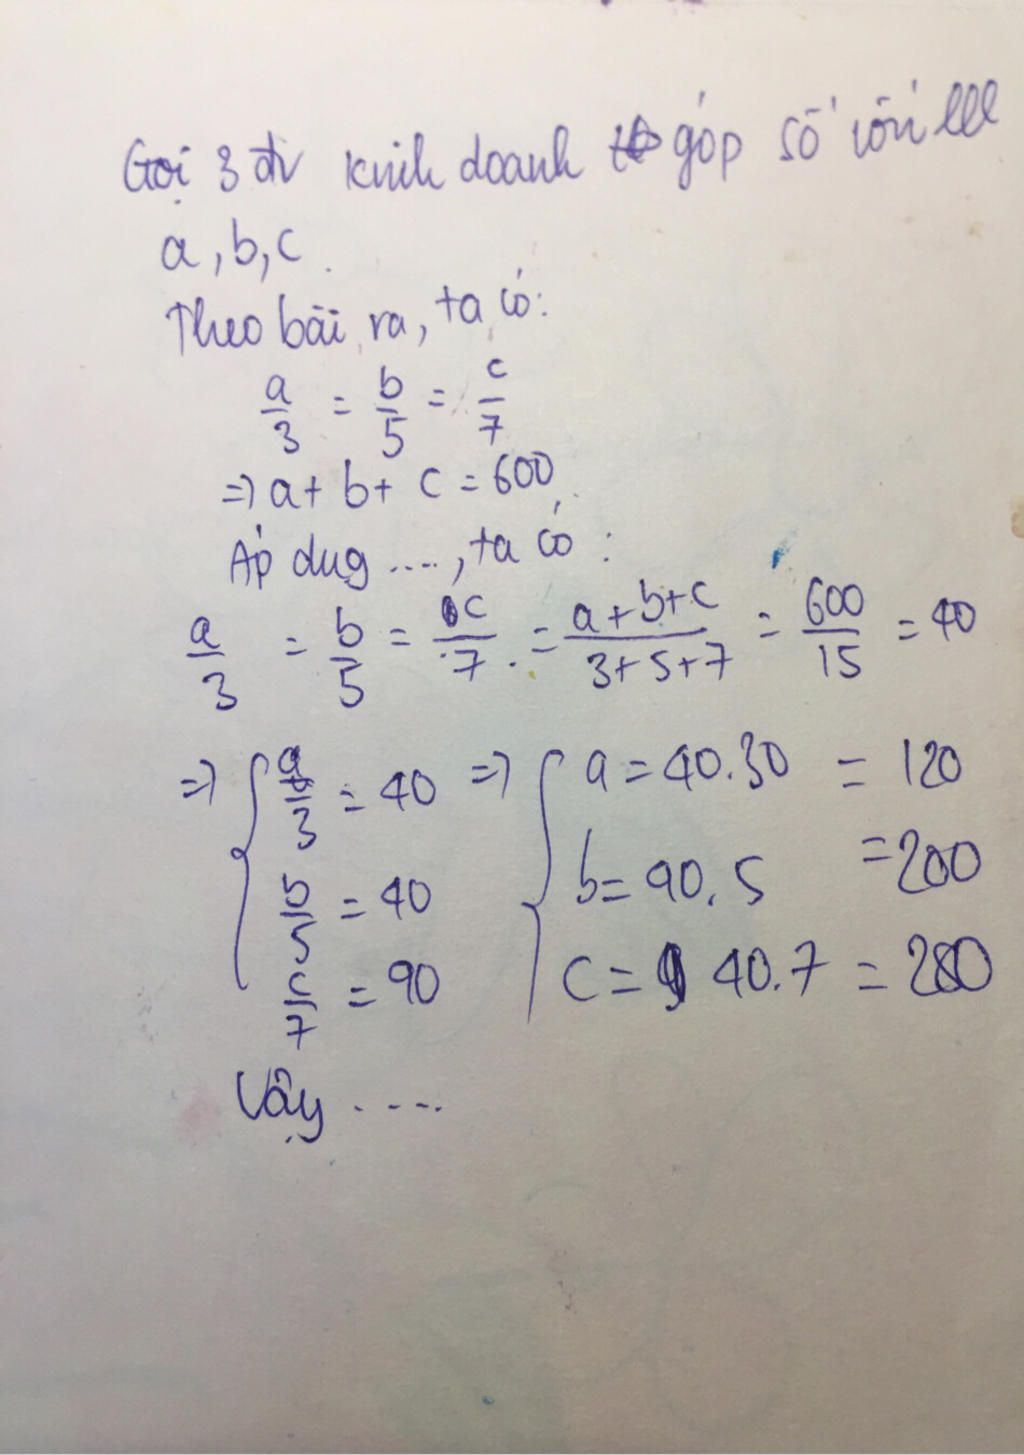 Gọi 3 đv kinh doanh góp số vốn lll
a, b, c.
Theo bài ra, ta có:
a/3 = b/5 = c/7
=> a + b + c = 600
Áp dug ...., ta có :
a/3 = b/5 = c/7 = a+b+c/3+5+7 = 600/15 = 40
=> { a/3 = 40 => { a = 40.30 = 120
b/5 = 40 b = 40.5 = 200
c/7 = 90 c = 40.7 = 280
Vậy ....